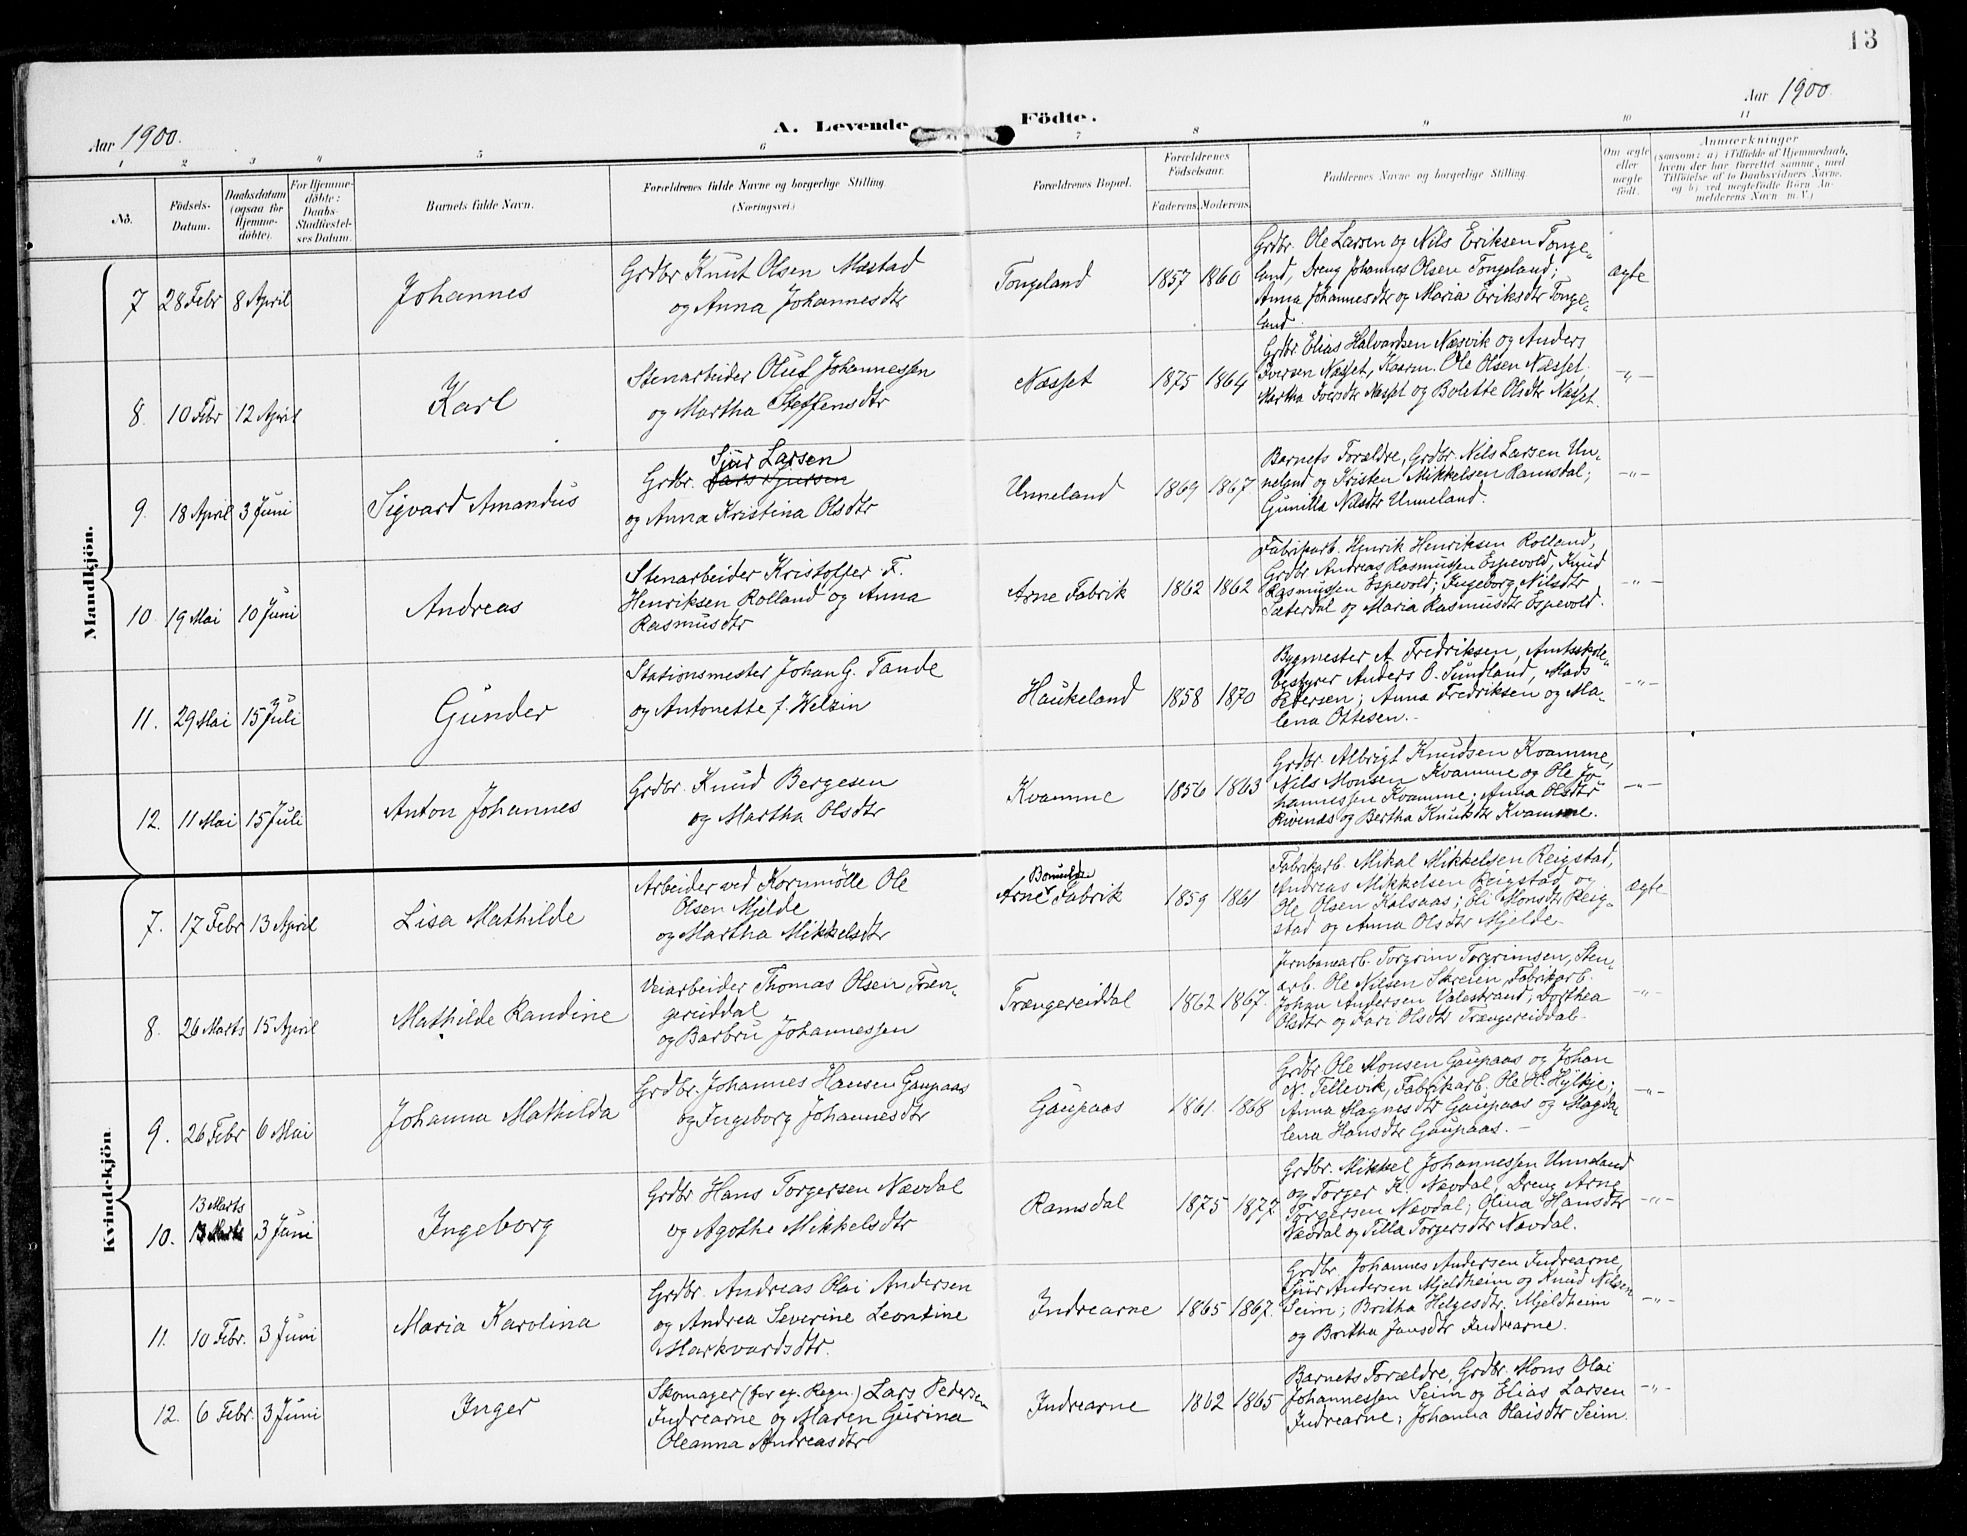 13
Aar 1900.
Aar 1900
A. Levende Födte.
1 2 3 4 5 6 7 8 9 10 11
No.
Födsels-
Datum.
Daabsdatum
(ogsaa for
Hjemme-
döbte).
For Hjemme-
döbte:
Daabs-
Stadfæstel-
ses Datum.
Barnets fulde Navn.
Forældrenes fulde Navne og borgerlige Stilling
(Næringsvei.)
Forældrenes Bopæl.
Forældrenes
Födselsaar.
Faderens. Moderens.
Faddernes Navne og borgerlige Stilling.
Om ægte
eller
uægte
født.
Anmærkninger
(saasom: a) i Tilfælde af Hjemmedaab,
hvem der har forrettet samme, med
Tilföielse af to Daabsvidners Navne,
og b) ved uægtefödte Börn An-
melderens Navn m. V.)
Mandkjön.
7 28 Febr 8 April Johannes
Grdbr Knut Olsen Mæstad
og Anna Johannesdtr
Tongeland 1857 1860
Grdbr. Ole Larsen og Nils Eriksen Tonge-
land, Dreng Johannes Olsen Tongeland;
Anna Johannesdtr og Maria Eriksdtr Tonge-
land.
ægte
8. 10 Febr 12 April Karl
Stenarbeider Oluf Johannessen
og Martha Steffensdtr
Næsset 1875 1864
Grdbr. Elias Halvardsen Næsvik og Anders
Iversen Næsset, Kaarm. Ole Olsen Næsset;
Martha Iversdtr Næsset og Bolette Olsdtr Næsset.
-"-
9. 18 April 3 Juni Sigvard Amandus
Sjur Larsen
Grdbr. Lars Sjursen
og Anna Kristina Olsdtr
Unneland 1869 1867
Barnets Forældre, Grdbr. Nils Larsen Un-
neland og Kristen Mikkelsen Ramsdal;
Gunilla Nilsdtr Unneland.
-"-
10. 19 Mai 10 Juni Andreas
Stenarbeider Kristoffer F.
Henriksen Rolland og Anna
Rasmusdtr
Arne Fabrik 1862 1862
Fabrikarb. Henrik Henriksen Rolland,
Grdbr Andreas Rasmussen Espevold, Knud
Rasmussen Espevold; Ingeborg Nilsdtr
Sæterdal og Maria Rasmusdtr Espevold.
-"-
11. 29 Mai 15 Juli Gunder
Stationsmester Johan G. Tande
og Antonette f. Welzin
Haukeland 1858 1870
Bygmester A. Fredriksen, Amtsskole-
bestyrer Anders O. Sundland, Mads
Petersen; Anna Fredriksen og Ma-
lena Ottesen.
-"-
12. 11 Mai 15 Juli Anton Johannes
Grdbr. Knud Bergesen
og Martha Olsdtr
Kvamme 1856 1863
Grdbr. Albrigt Knudsen Kvamme,
Nils Monsen Kvamme og Ole Jo-
hannessen Kvamme; Anna Olsdtr
Rivenæs og Bertha Knutsdtr Kvamme.
-"-
Kvindekjön.
7. 17 Febr 13 April Lisa Mathilde
Arbeider ved Kornmölle Ole
Olsen Mjelde
og Martha Mikkelsdtr
Arne Fabrik 1859 1861
Fabrikarb. Mikal Mikkelsen Reigstad,
Andreas Mikkelsen Reigstad og
Ole Olsen Kalsaas; Eli Monsdtr Reig-
stad og Anna Olsdtr Mjelde.
ægte
8. 26 Marts 15 April Mathilde Randine
Veiarbeider Thomas Olsen Træn-
gereiddal
og Barbru Johannessen
Trængereiddal 1862 1867.
Jernbanearb. Torgrim Torgrimsen, Sten-
arb. Ole Nilsen Skreien, Fabrikarb.
Johan Andersen Valestrand; Dorthea
Olsdtr og Kari Olsdtr Trængereiddal.
-"-
9. 26 Febr 6 Mai Johanna Mathilda
Grdbr. Johannes Hansen Gaupaas
og Ingeborg Johannesdtr
Gaupaas 1861. 1868
Grdbr Ole Monsen Gaupaas og Johan
N. Tellevik, Fabrikarb. Ole H. Hylkje;
Anna Magnesdtr Gaupaas og Magda-
lena Hansdtr Gaupaas.
-"-
13 Marts
10. 13 Marts 3 Juni Ingeborg
Grdbr Hans Torgersen Nævdal
og Agothe Mikkelsdtr
Ramsdal 1875 1877.
Grdbr. Mikkel Johannessen Unneland
og Torger K. Nævdal, Dreng Arne
Torgersen Nævdal; Olina Hansdtr
Nævdal og Tilla Torgersdtr Nævdal.
-"-
11. 10 Febr. 3 Juni Maria Karolina
Grdbr. Andreas Olai Andersen
og Andrea Severine Leontine
Markvardsdtr.
Indrearne 1865 1867.
Grdbr. Johannes Andersen Indrearne,
Sjur Andersen Mjeldheim og Knud Nilsen
Seim; Britha Helgesdtr. Mjeldheim
og Britha Jansdtr Indrearne.
-"-
12. 6 Febr. 3 Juni Inger
Skomager (for eg. Regn.) Lars Pedersen
Indrearne og Maren Gurina
Oleanna Andreasdtr
Indrearne 1862 1865
Barnets Forældre, Grdbr. Mons Olai
Johannessen Seim og Elias Larsen
Indrearne; Johanna Olaisdtr Seim.
-"-